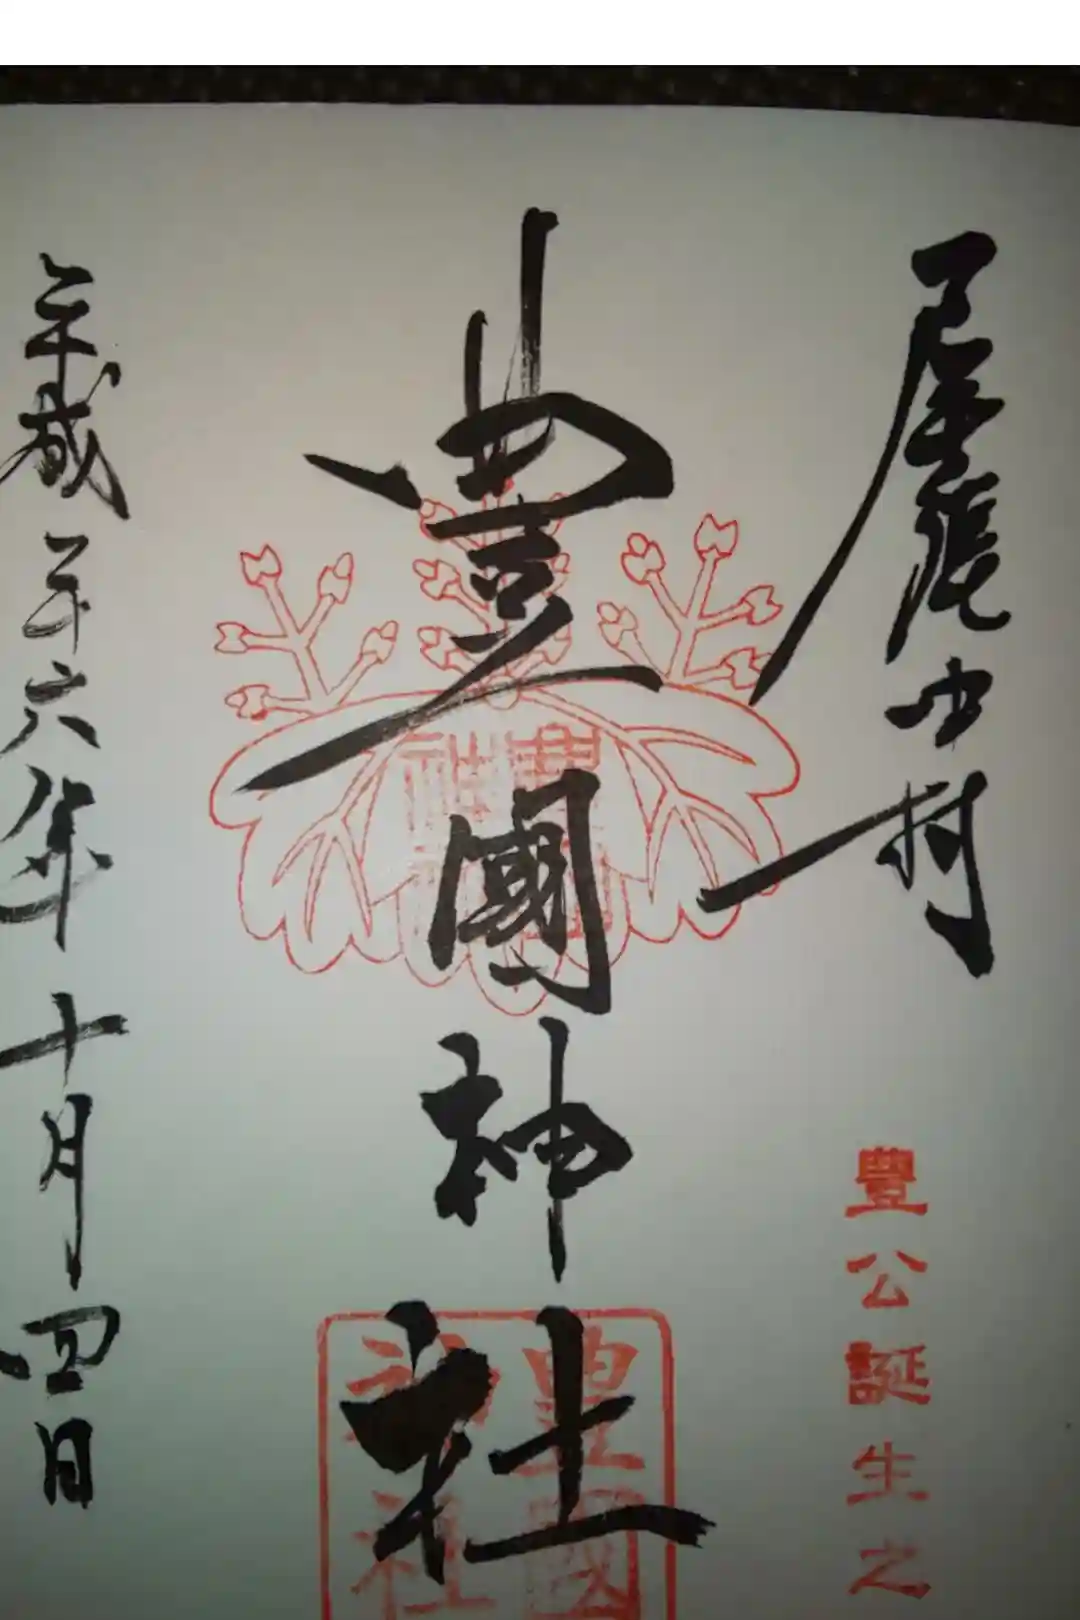 尾張中村
豊公誕生之
豊國神社
豊國
神社
平成二十六年十月四日